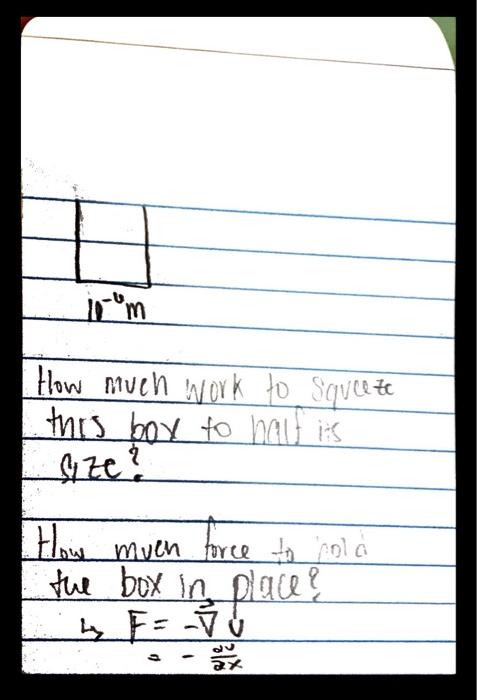 10⁻⁶m
How much work to squeeze
this box to half its
size?
How much force to hold
the box in place?
↳ F = -∇⃗ U
= - ∂U/∂x